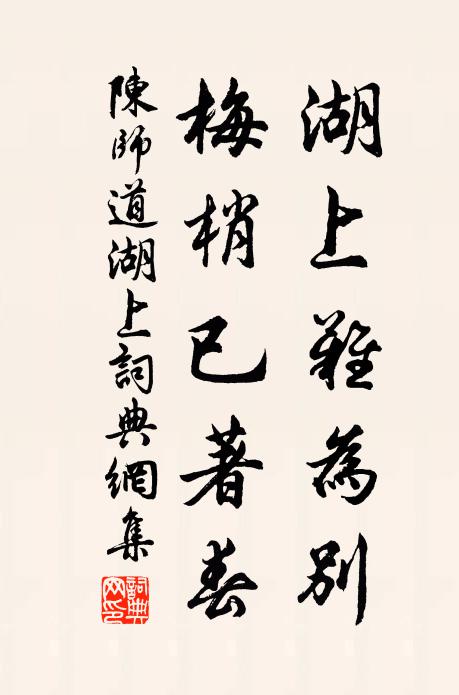 湖上難為別
梅梢已著春
陳師道湖上詞典網集
詞典網印